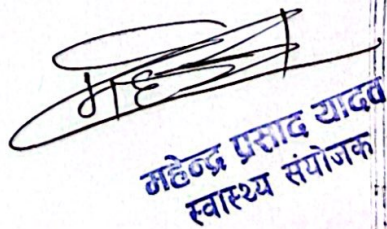 महेन्द्र प्रसाद यादव
स्वास्थ्य संयोजक